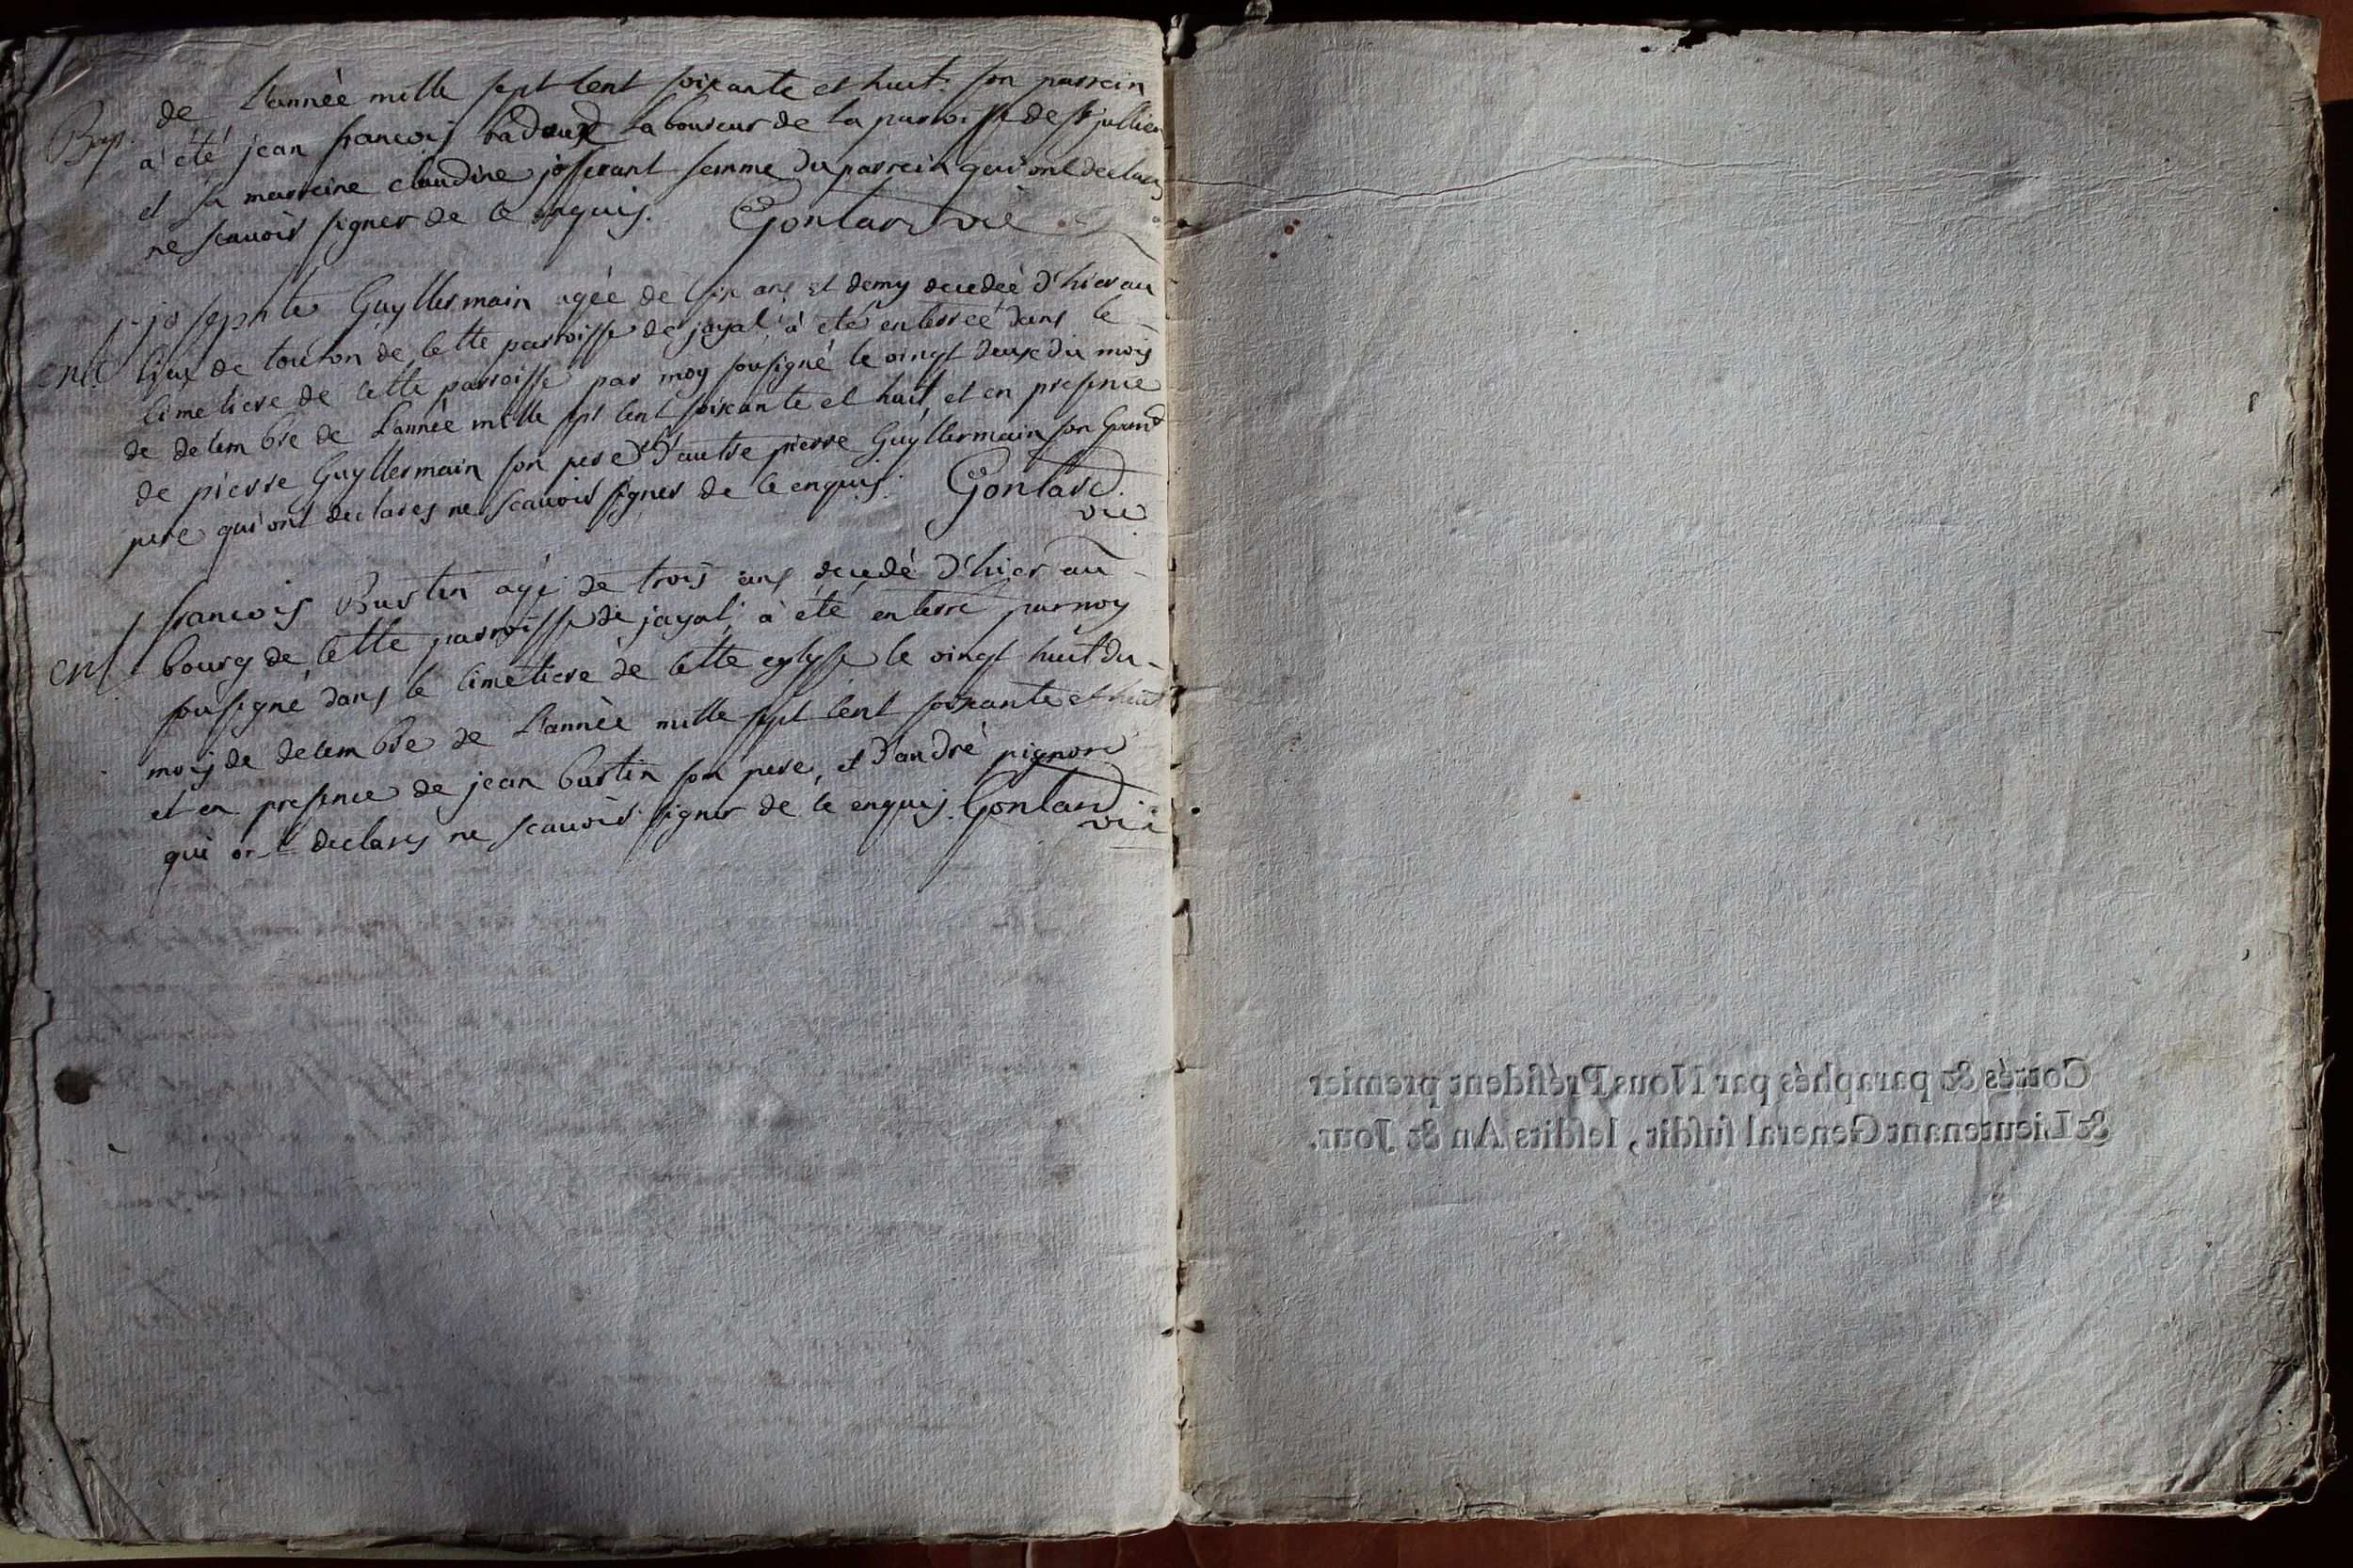 Bap.
de L'année mille sept cent soixante et huit. son parrein
à été jean francois badoux Laboureur de la parroisse de st jullien
et sa marreine claudine josserant femme du parrein qui ont declarés
ne scavoir signer de ce enquis. Gontard vic
josephte Guyllermain agée de six ans et demy decedée d'hier au
ent lieux de toulon de cette parroisse de jayat à été enterrée dans le
cimetiere de cette parroisse par moy sousigné le vingt deux du mois
de decembre de L'année mille sept cent soixante et huit, et en presence
de pierre Guyllermain son pere et d'autre pierre Guyllermain son Grand
pere qui ont declarés ne scavoir signer de ce enquis. Gontard
vic
francois Burtin agé de trois ans, decedé d'hier au
ent bourg de cette parroisse de jayat, à été enterré par moy
sousigné dans le cimetiere de cette eglysse le vingt huit du
mois de decembre de L'année mille sept cent soixante et huit
et en presence de jean burtin son pere, et d'andré pignon
qui ont declarés ne scavoir signer de ce enquis. Gontard
vic
Cottés & paraphés par Nous Préſident premier
& Lieutenant General ſuſdit, leſdits An & Jour.